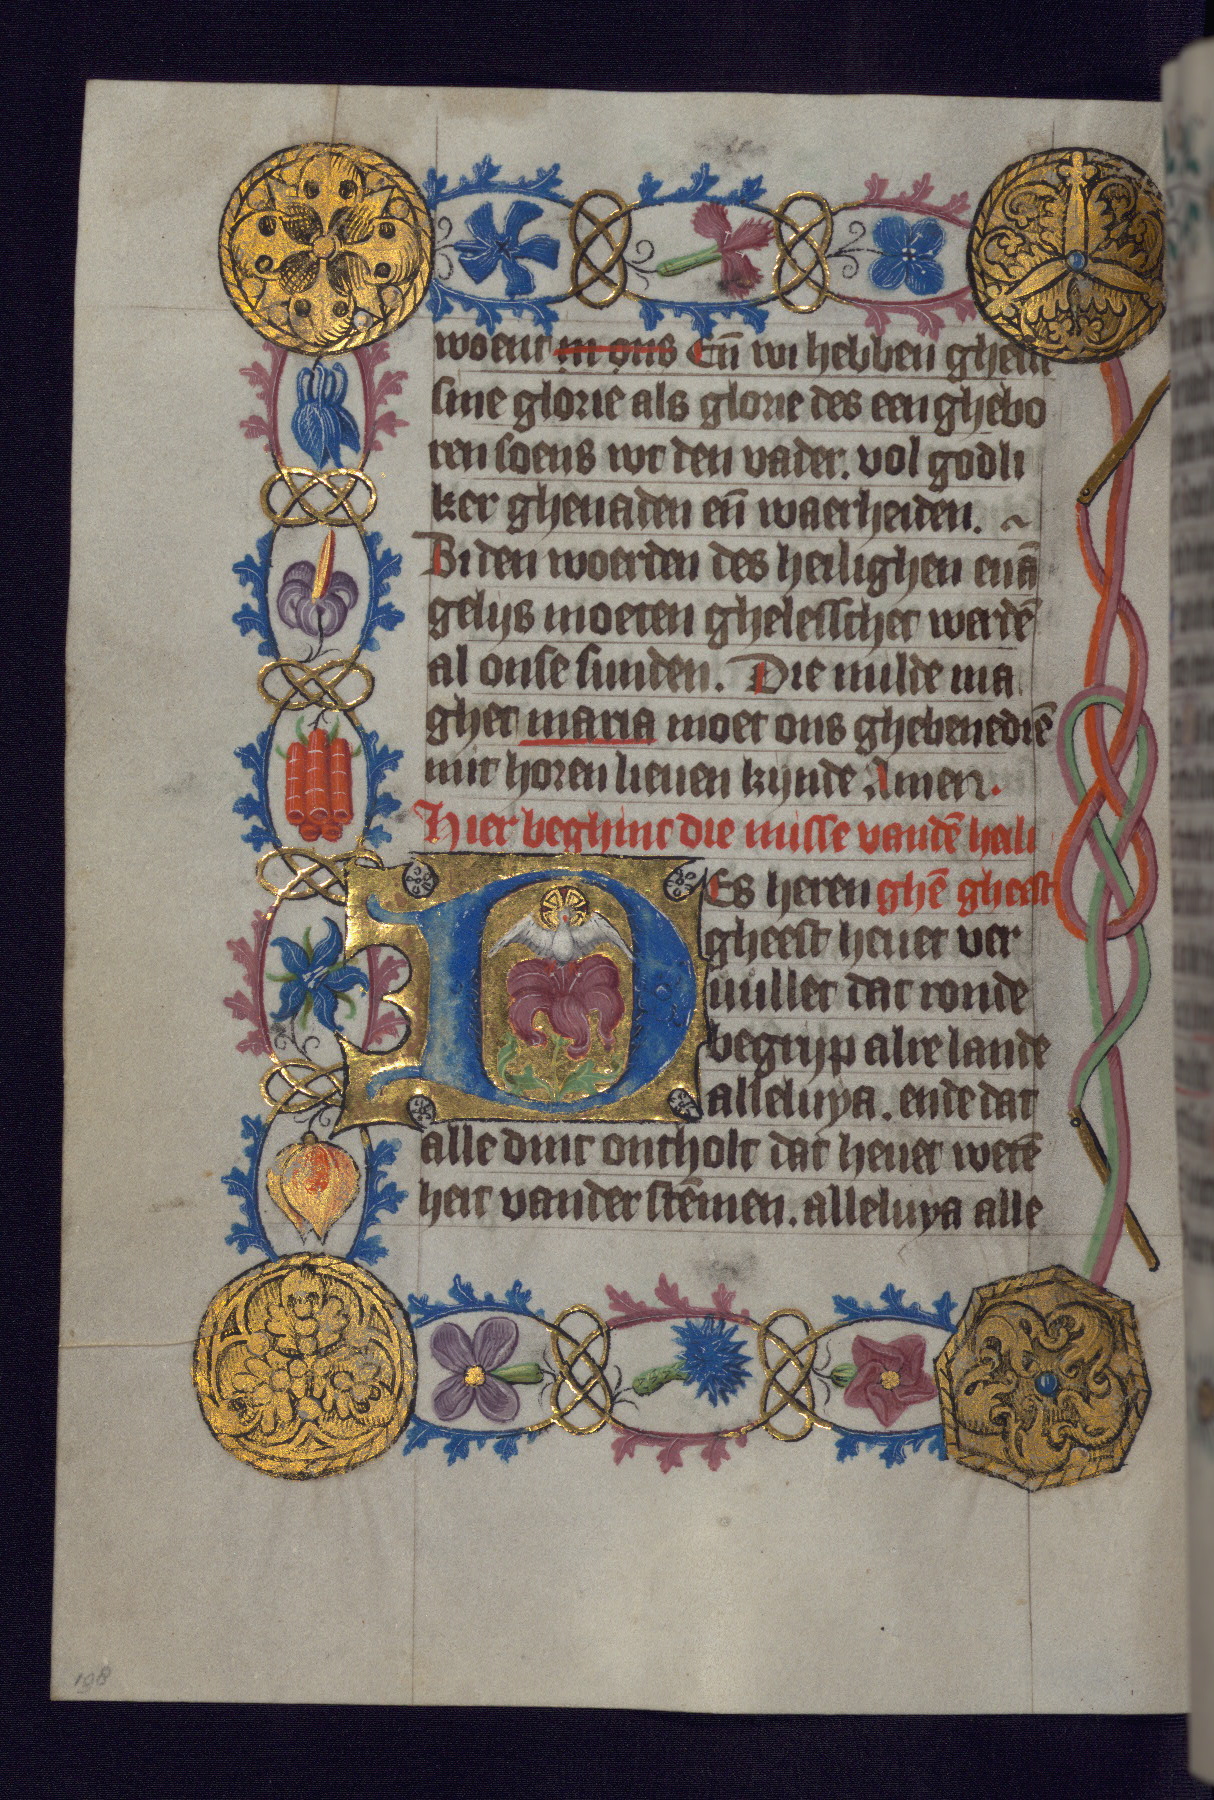 woent in ons En̄ wi hebben ghesi
sine glorie als glorie des een ghebo
ren soens wt den vader. vol godli
ker ghenaden en̄ waerheiden.
Bi den woerden des heilighen euā
gelijs moeten ghelesschet werdē
al onse sunden. Die milde ma
ghet maria moet ons ghebenediē
mit horen lieuen kijnde Amen.
Hier beghint die misse vandē heili
Es heren ghē gheest
gheest heuet ver
uullet dat ronde
begrijp alre lande
alleluya. ende dat
alle dinc ontholt dat heuet wetē
heit vander stēmen. alleluya alle
198